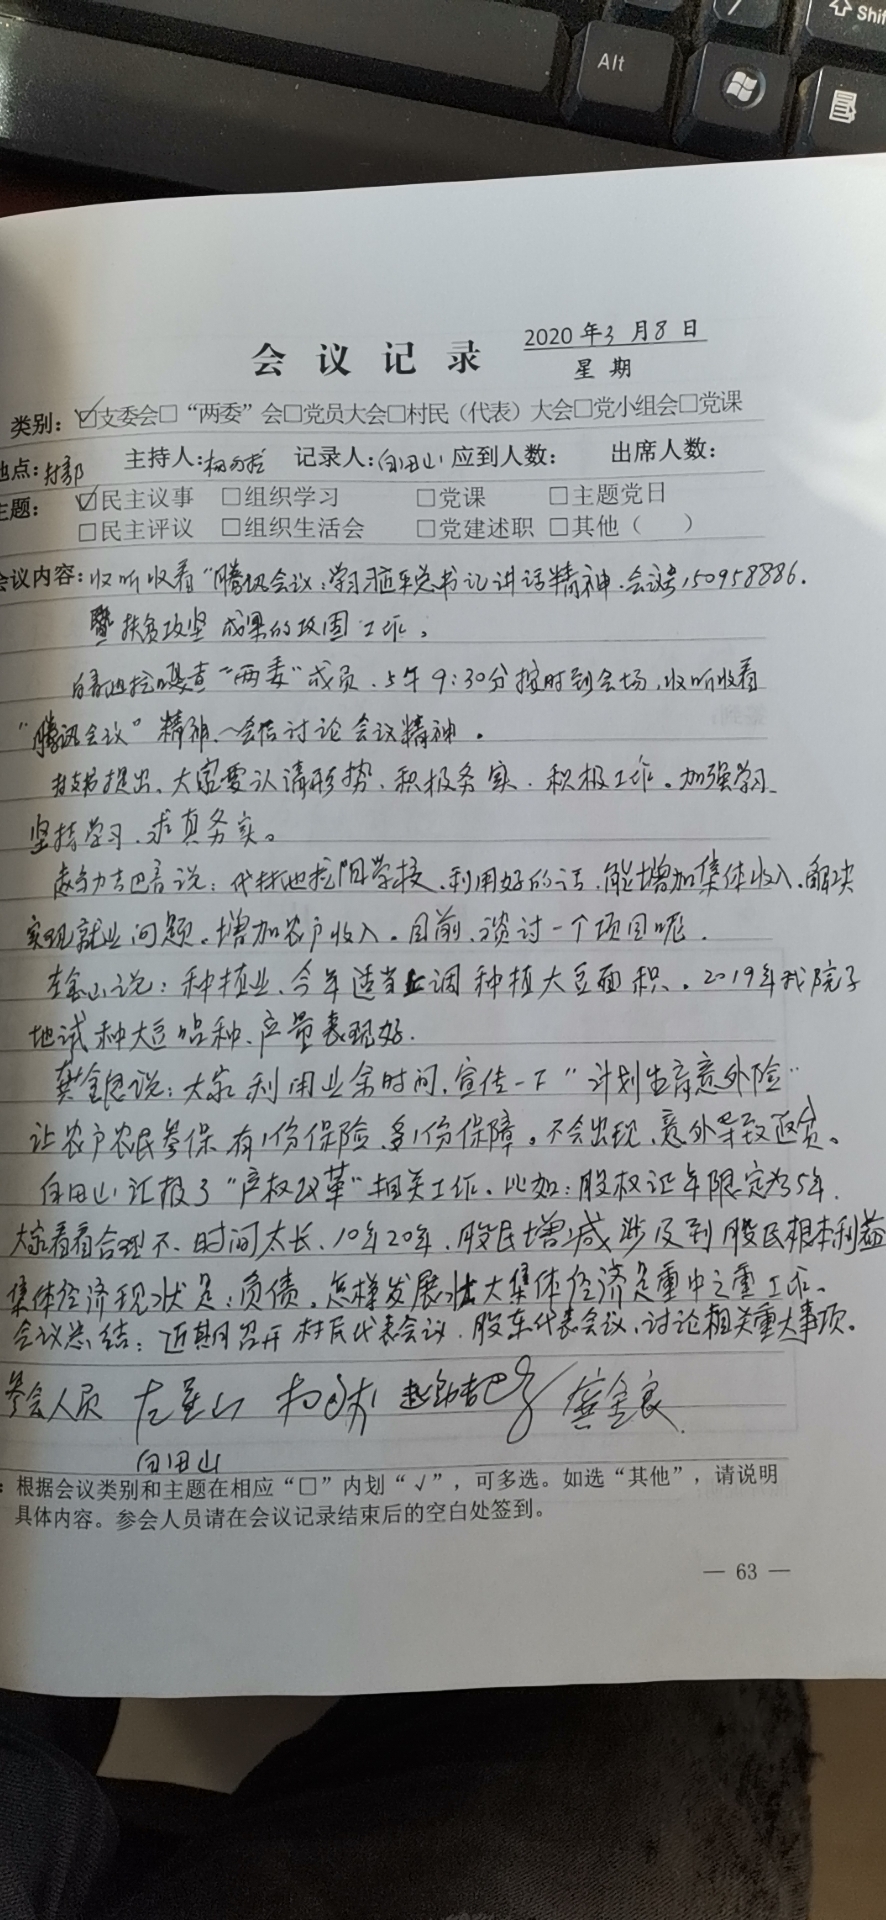 Alt
Shif
会议记录
2020年3月8日
星期
类别：☑支委会□“两委”会□党员大会□村民（代表）大会□党小组会□党课
地点：村部 主持人： 记录人：白田山 应到人数： 出席人数：
主题： ☑民主议事 □组织学习 □党课 □主题党日
□民主评议 □组织生活会 □党建述职 □其他（ ）
会议内容：收听收看“腾讯会议：学习习近平总书记讲话精神．会议号150958886．
暨扶贫攻坚成果的巩固工作。
“两委”成员、上午9:30分按时到会场，收听收看
“腾讯会议”精神、会后讨论会议精神。
村支书提出、大家要认请形势、积极务实．积极工作。加强学习、
坚持学习、求真务实。
吉巴音说：学校、利用好的话、能增加集体收入、解决
实现就业问题。增加农户收入。目前、谈讨一个项目呢．
说：种植业、今年适当上调种植大豆面积。2019年我院子
地试种大豆品种、产量表现好．
说：大家利用业余时间，宣传一下“计划生育意外险”
让农户农民参保有1份保险、多1份保障。不会出现、意外导致返贫。
白田山汇报了“产权改革”相关工作。比如：股权证年限定为5年．
大家看看合理不、时间太长、10年20年．股民增减涉及到股民根本利益
集体经济现状是：负债。怎样发展壮大集体经济是重中之重工作、
会议总结：近期召开村民代表会议．股东代表会议、讨论相关重大事项。
参会人员
白田山
：根据会议类别和主题在相应“□”内划“√”，可多选。如选“其他”，请说明
具体内容。参会人员请在会议记录结束后的空白处签到。
— 63 —